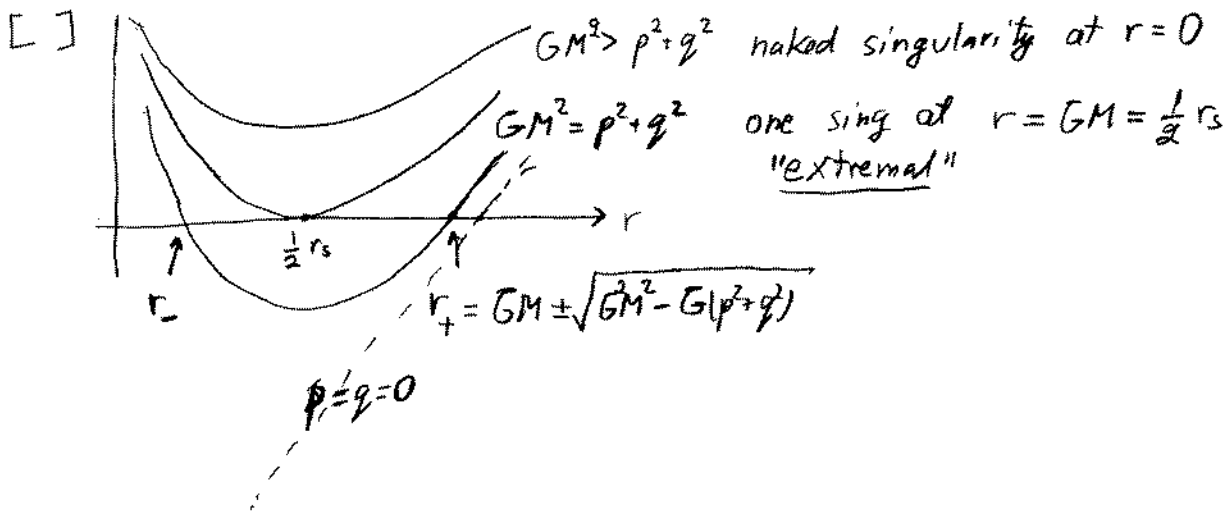 [ ]
GM²> p²+q² naked singularity at r = 0
GM² = p²+q² one sing at r = GM = ½ rₛ
"extremal"
r
½ rₛ
r₋
r₊ = GM ± √G²M² - G(p²+q²)
p=q=0